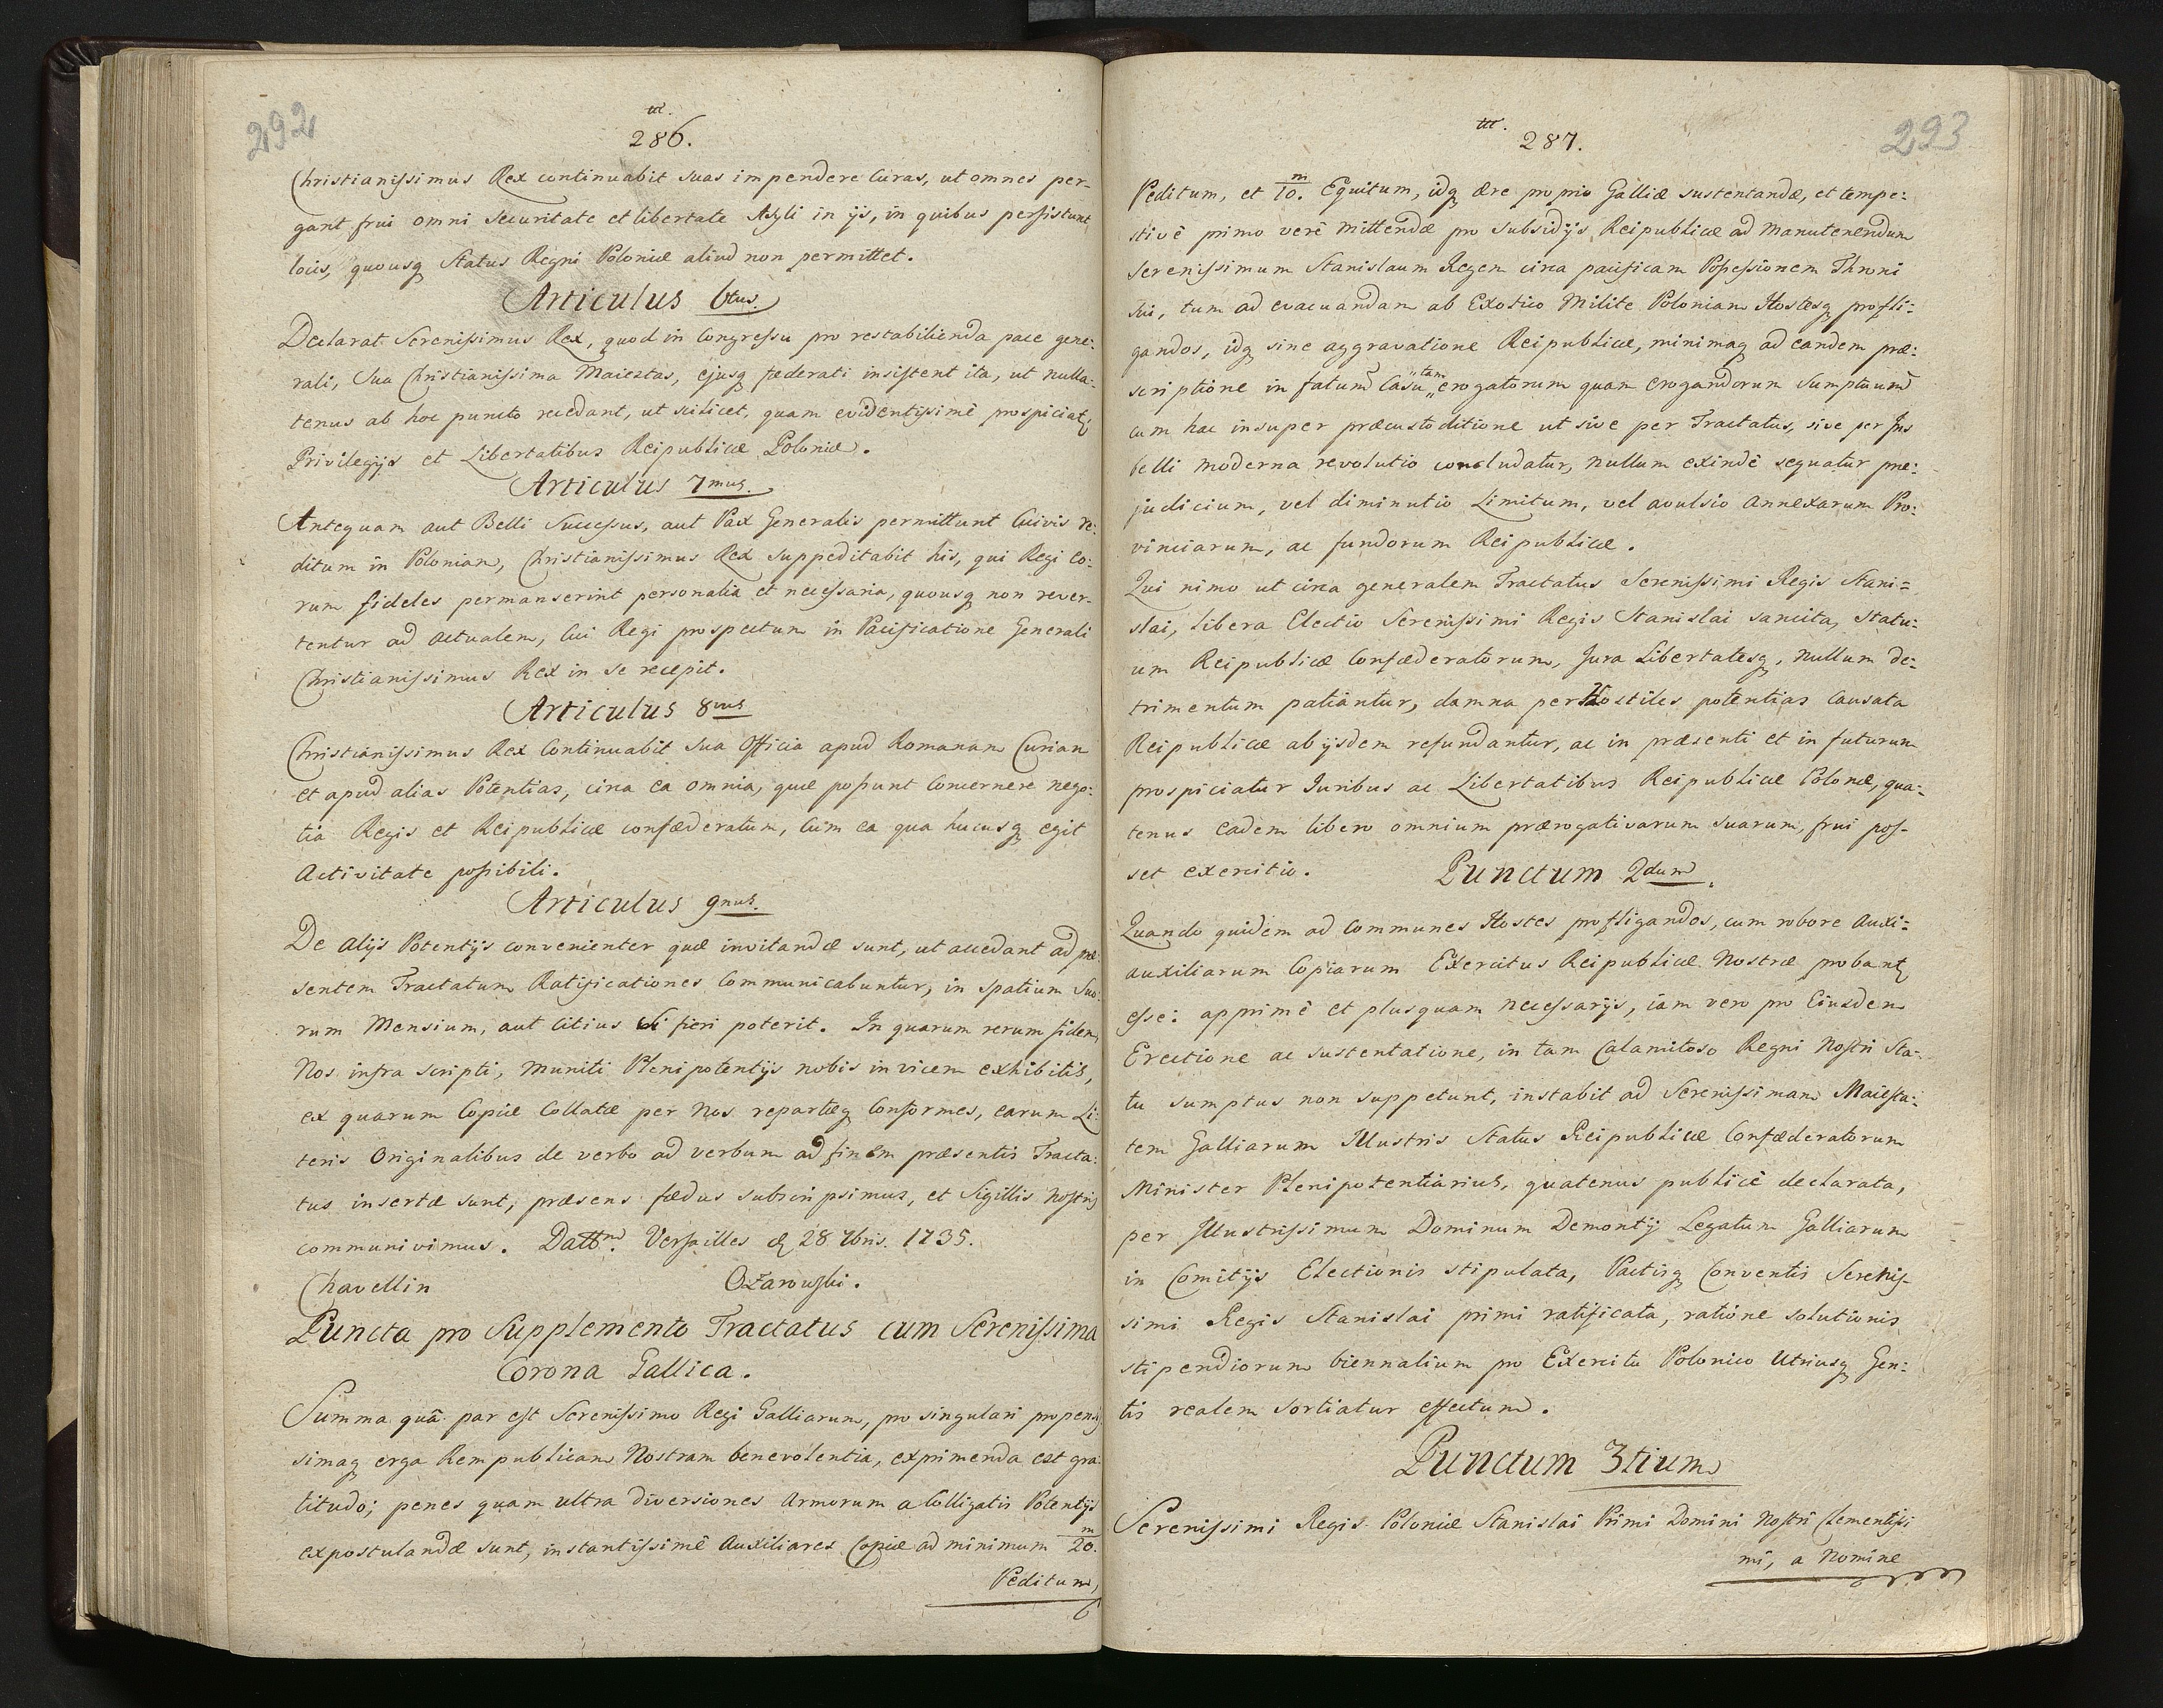 292
286.
Christianissimus Rex continuabit suas impendere Curas, ut omnes per-
gant frui omni securitate et libertate Asyli in ijs, in quibus persistunt
locis, quousq Status Regni Poloniæ aliud non permittet.
Articulus 6tus.
Declarat Serenissimus Rex, quod in Congressu pro restabilienda pace gene:
rali, Sua Christianissima Maiestas, ejusq fæderati insistent ita, ut nulla-
tenus ab hoc puncto recedant, ut scilicet, quam evidentissimè prospiciatq
Privilegijs et Libertatibus Reipublicæ Poloniæ.
Articulus 7mus.
Antequam aut Belli Successus, aut Pax Generalis permittunt Cuivis re:
ditum in Poloniam, Christianissimus Rex suppeditabit his, qui Regi Co:
rum fideles permanserint personalia et necessaria, quousq non rever-
tentur ad actualem, Cui Regi prospectum in Pacificatione Generali
Christianissimus Rex in se recepit.
Articulus 8vus
Christianissimus Rex Continuabit sua Officia apud Romanam Curiam
et apud alias Potentias, circa ea omnia, quæ possunt Concernere nego:
tia Regis et Reipublicæ confæderatum, Cum ea qua hucusq egit
Activitate possibili.
Articulus 9nus.
De alijs Potentijs convenienter quæ invitandæ sunt, ut accedant ad præ
sentem Tractatum Ratificationes Communicabuntur, in spatium Suo:
rum Mensium, aut Citius si fieri poterit. In quarum rerum fidem
Nos infra scripti, Muniti Plenipotentijs nobis invicem exhibitis,
ex quarum Copiæ Collatæ per nos repartæq Conformes, earum Li:
teris Originalibus de verbo ad verbum ad finem præsentis Tracta:
tus insertæ sunt, præsens fædus subscripsimus, et Sigillis nostris
communivimus. Datt. Versailles d 28 7bris. 1735.
Chavellin Ozarowski.
Puncta pro Supplemento Tractatus cum Serenissima
Corona Gallica.
Summa quâ par est Serenissimo Regi Galliarum, pro singulari propens
simaq erga Rempublicam Nostram benevolentia, exprimenda est gra
titudo; penes quam ultra diversiones Armorum a Colligatis Potentijs
expostulandæ sunt, instantissimè Auxiliares Copiæ ad minimum m/20.
Peditum,
293
287.
Peditum, et m/10. Equitum, idq ære proprio Galliæ sustentandæ, et tempe:
stivè primo verè mittendæ pro Subsidijs Reipublicæ ad Manutenendum
Serenissimum Stanislaum Regem circa pacificam Possessionem Throni
sui, tum ad evacuandam ab Exotico Milite Poloniam Hostesq profli:
gandos, idq sine aggravatione Reipublicæ, minimaq ad eandem præ:
scriptione in fatum Casu tam erogatorum quam erogandorum Sumptuum
cum hac insuper præcustoditione ut sive per Tractatus, sive per Jus
belli moderna revolutio concludatur, nullum exindè sequatur præ:
judicium, vel diminutio Limitum, vel avulsio annexarum Pro:
vinciarum, ac fundorum Reipublicæ.
Qui nimo ut circa generalem Tractatus Serenissimi Regis Stani=
slai, Libera Electio Serenissimi Regis Stanislai sancita, Statu:
um Reipublicæ Confæderatorum, Jura Libertatesq, nullum de:
trimentum patiantur, damna per Hostiles potentias Causata
Reipublicæ ab ijsdem refundantur, ac in præsenti et in futurum
prospiciatur Iuribus ac Libertatibus Reipublicæ Polonæ, qua:
tenus eadem libero omnium prærogativarum suarum, frui pos-
set exercitio. Punctum 2dum.
Quando quidem ad Communes Hostes profligandos, cum robore Auxi=
auxiliarum Copiarum Exercitus Reipublicæ Nostræ probantq
esse: apprimè et plusquam necessarijs, iam vero pro Eiusdem
Erectione ac sustentatione, in tam Calamitoso Regni Nostri Sta-
tu sumptus non suppetunt, instabit ad Serenissimam Maiesta:
tem Galliarum Illustris Status Reipublicæ Confæderatorum
Minister Plenipotentiarius, quatenus publicè declarata,
per Illustrissimum Dominum Demontij Legatum Galliarum
in Comitijs Electionis stipulata, Pactisq Conventis Serenis-
simi Regis Stanislai primi ratificata, ratione solutionis
stipendiorum biennalium pro Exercitu Polonico Utriusq Gen:
tis realem sortiatur effectum.
Punctum 3tium
Serenissimi Regis Poloniæ Stanislai Primi Domini Nostri Clementissi
mi, a Nomine